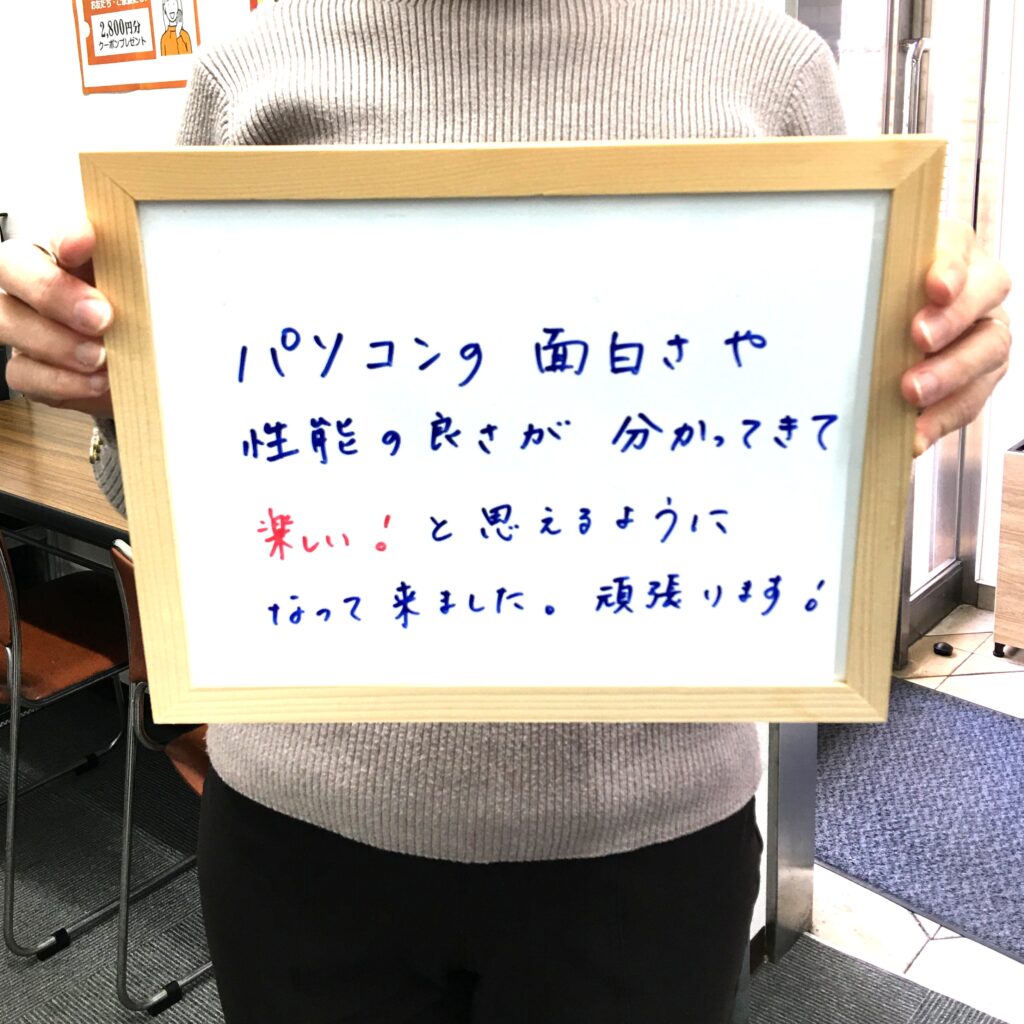 2,800円分
クーポンプレゼント
パソコンの 面白さや
性能の良さが 分かってきて
楽しい！と思えるように
なって来ました。頑張ります！